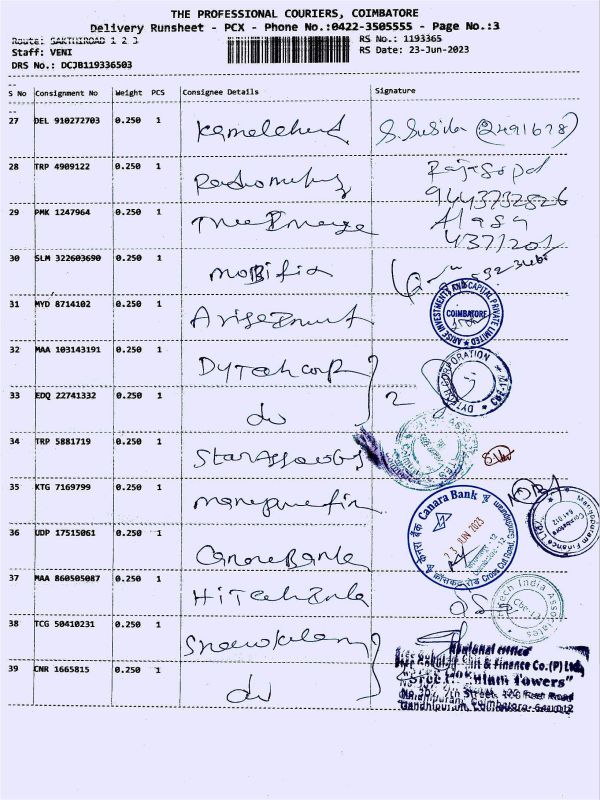 THE PROFESSIONAL COURIERS, COIMBATORE
Delivery Runsheet - PCX - Phone No.:0422-3505555 - Page No.:3
Route: SAKTHIROAD 1 2 3
RS No.: 1193365
Staff: VENI
RS Date: 23-Jun-2023
DRS No.: DCJB119336503
S No Consignment No Weight PCS Consignee Details Signature
27 DEL 910272703 0.250 1 S. Susila (2491678)
28 TRP 4909122 0.250 1 Rajagopal
9443732826
29 PMK 1247964 0.250 1
4371201
30 SLM 322603690 0.250 1 Mobifin
31 MYD 8714102 0.250 1 Arise Invest
ARISE INVESTMENTS AND CAPITAL PRIVATE LIMITED
COIMBATORE
32 MAA 103143191 0.250 1 DyTech Corp
DYTECH CORPORATION
33 EDQ 22741332 0.250 1 do 2
34 TRP 5881719 0.250 1 Star Associates
35 KTG 7169799 0.250 1
Manappuram Finance Ltd
Coimbatore
641 012
36 UDP 17515061 0.250 1 Canara Bank
केनरा बैंक Canara Bank
23 JUN 2023
37 MAA 860505087 0.250 1 HiTech India
Hitech India Associates
38 TCG 50410231 0.250 1
Regional Office
39 CNR 1665815 0.250 1 do
Sree Gokulam Chit & Finance Co.(P) Ltd.,
"Sree Gokulam Towers"
7th Street, 100 Feet Road
Gandhipuram, Coimbatore-641012